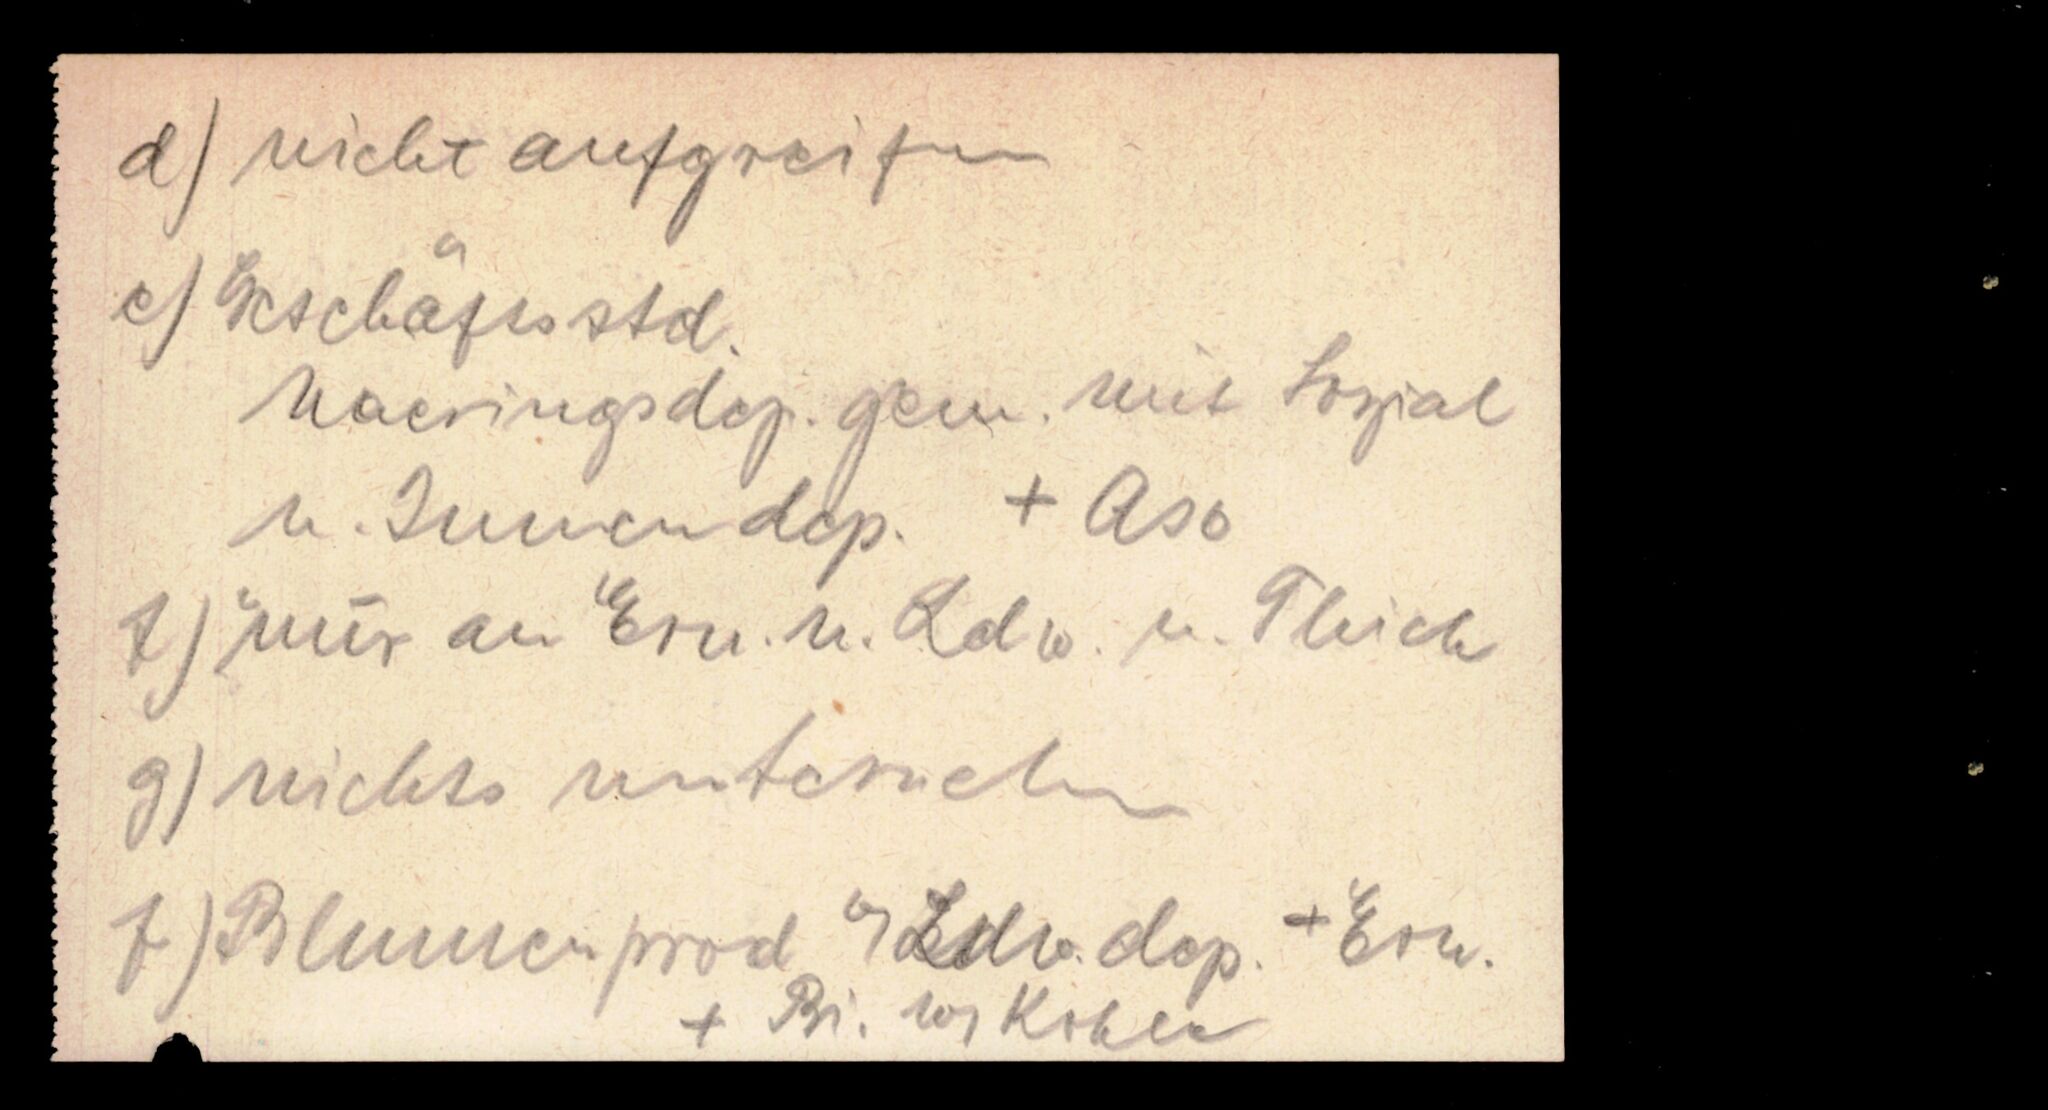 d) nicht aufgreifen
e) Geschäftsstd.
Naeringsdep. gem. mit Sozial
u. Innendep. + Aso
f) nur an Ern. u. Ldw. u.
g) nichts unternehmen
f) Blumenprod Ldw. dep. + Ern.
+ Bi. wg Kohlen